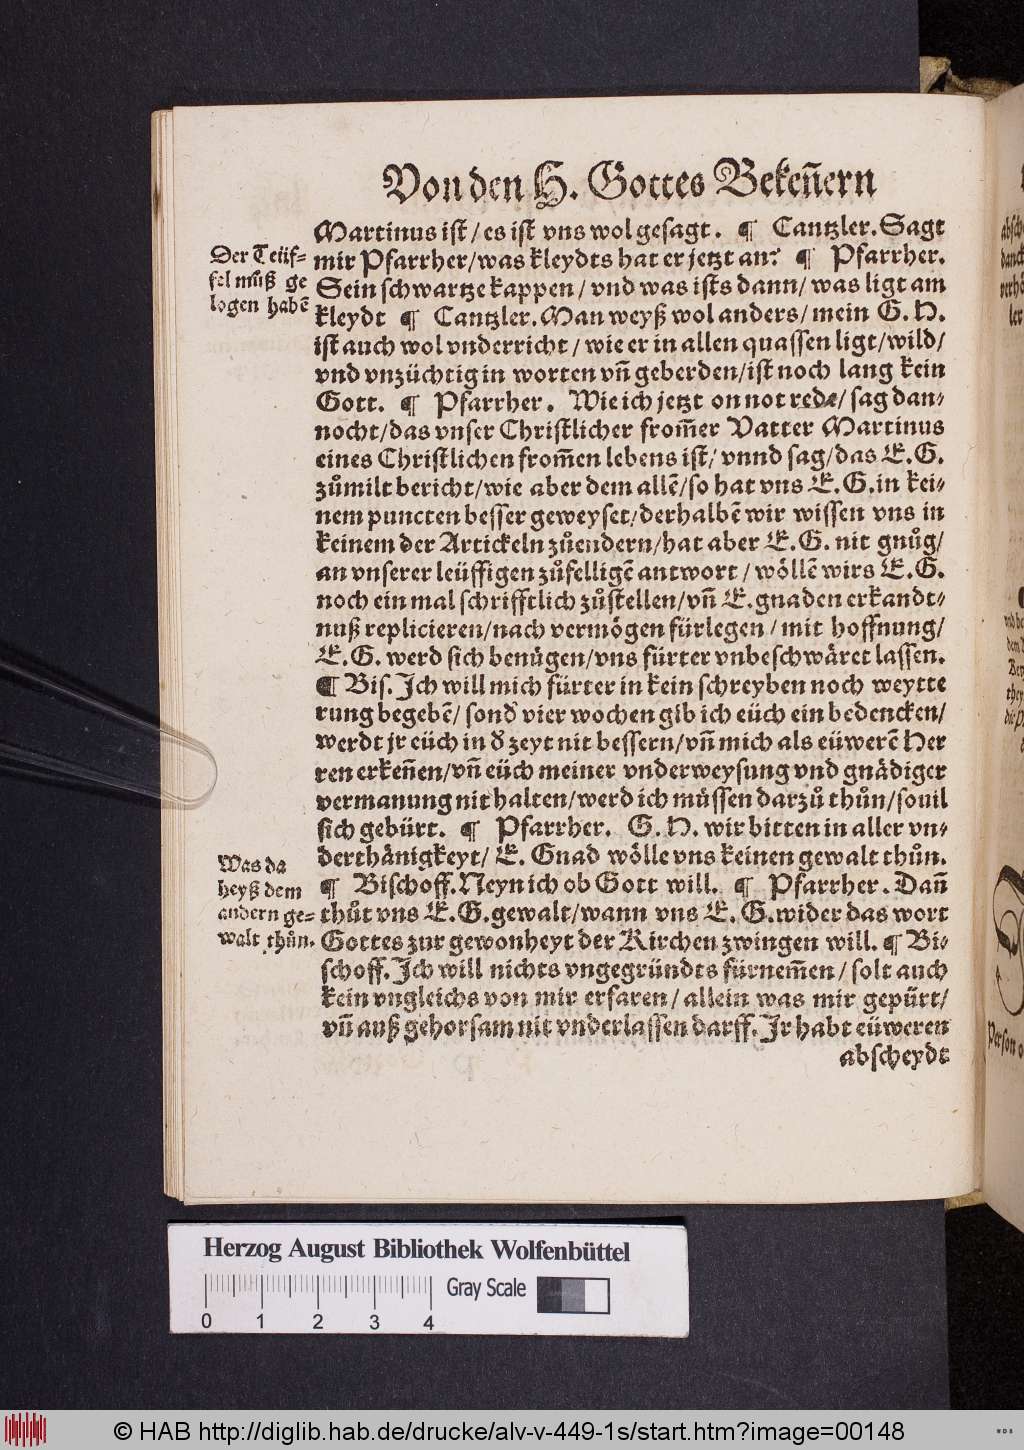 Von den H. Gottes Bekeñern
Martinus ist / es ist vns wol gesagt. ¶ Cantzler. Sagt
mir Pfarrher/was kleydts hat er jetzt an? ¶ Pfarrher.
Sein schwartze kappen / vnd was ists dann/ was ligt am
kleydt ¶ Cantzler. Man weyß wol anders/ mein G. H.
ist auch wol vnderricht / wie er in allen quassen ligt/wild/
vnd vnzüchtig in worten vñ geberden/ist noch lang kein
Gott. ¶ Pfarrher. Wie ich jetzt on not rede/ sag dan-
nocht/das vnser Christlicher from̃er Vatter Martinus
eines Christlichen from̃en lebens ist/ vnnd sag/das E. G.
zůmilt bericht/wie aber dem allẽ/so hat vns E. G. in kei-
nem puncten besser geweyset/derhalbẽ wir wissen vns in
keinem der Artickeln zůendern/hat aber E. G. nit gnůg/
an vnserer leüffigen zůfelligẽ antwort / wöllẽ wirs E. G.
noch ein mal schrifftlich zůstellen/vñ E. gnaden erkandt-
nuß replicieren/nach vermögen fürlegen / mit hoffnung/
E. G. werd sich benügen/vns fürter vnbeschwäret lassen.
¶ Bis. Ich will mich fürter in kein schreyben noch weytte
rung begebẽ/ sond' vier wochen gib ich eüch ein bedencken/
werdt jr eüch in d' zeyt nit bessern/vñ mich als eüwerẽ Her
ren erkeñen/vñ eüch meiner vnderweysung vnd gnädiger
vermanung nit halten/werd ich müssen darzů thůn/souil
sich gebürt. ¶ Pfarrher. G. H. wir bitten in aller vn-
derthänigkeyt/ E. Gnad wölle vns keinen gewalt thůn.
¶ Bischoff. Neyn ich ob Gott will. ¶ Pfarrher. Dañ
thůt vns E. G. gewalt/wann vns E. G. wider das wort
Gottes zur gewonheyt der Kirchen zwingen will. ¶ Bi-
schoff. Ich will nichts vngegründts fürnem̃en / solt auch
kein vngleichs von mir erfaren / allein was mir gepürt/
vñ auß gehorsam nit vnderlassen darff. Ir habt eüweren
abscheydt
Der Teüf-
fel můß ge
logen habẽ
Was da
heyß dem
andern ge-
walt thůn.
Person
Herzog August Bibliothek Wolfenbüttel
Gray Scale
0 1 2 3 4
© HAB http://diglib.hab.de/drucke/alv-v-449-1s/start.htm?image=00148